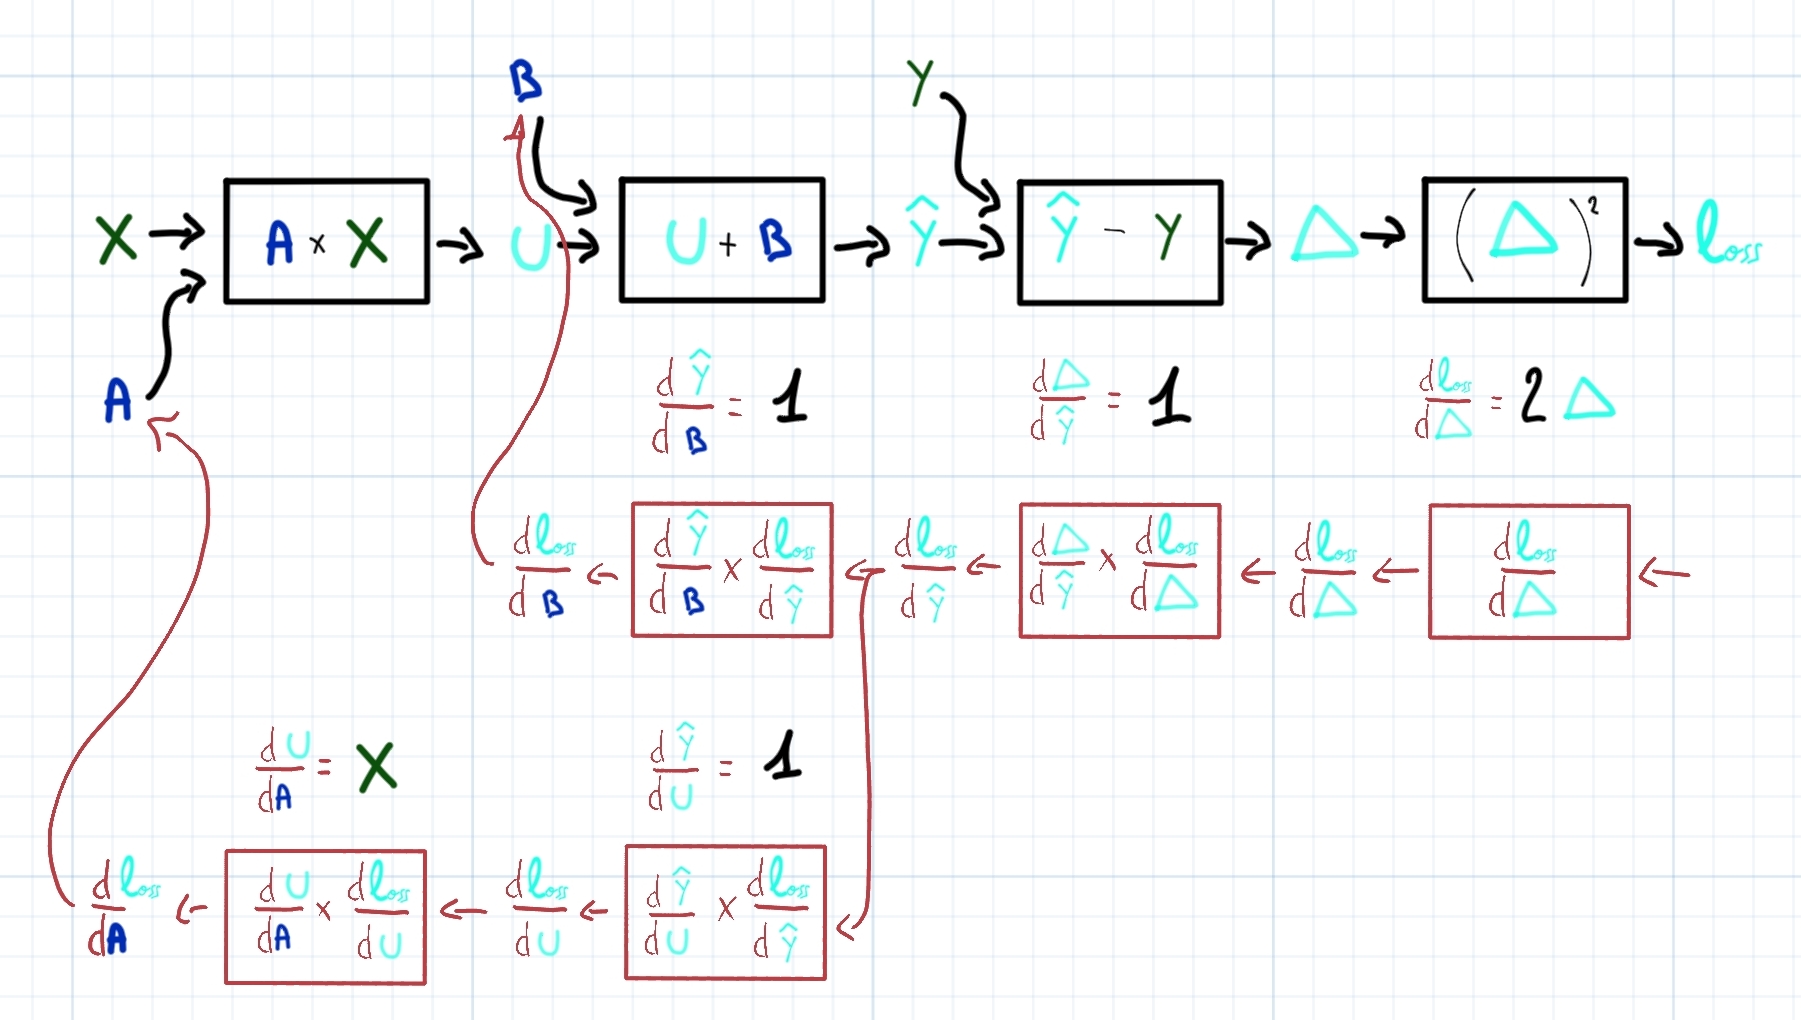 B Y
X A × X U U + B Ŷ Ŷ − Y Δ (Δ)² loss
A
dŶ/dB = 1 dΔ/dŶ = 1 dloss/dΔ = 2Δ
dloss/dB dŶ/dB × dloss/dŶ dloss/dŶ dΔ/dŶ × dloss/dΔ dloss/dΔ dloss/dΔ
dU/dA = X dŶ/dU = 1
dloss/dA dU/dA × dloss/dU dloss/dU dŶ/dU × dloss/dŶ